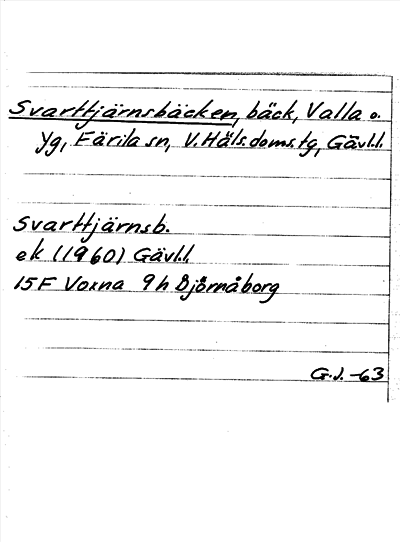 Svarttjärnsbäcken, bäck, Valla o.
Yg, Färila sn, V. Häls. doms. tg, Gävl.l.
Svarttjärnsb.
ek (1960) Gävl.l.
15F Voxna 9h Björnåborg
G.J. -63